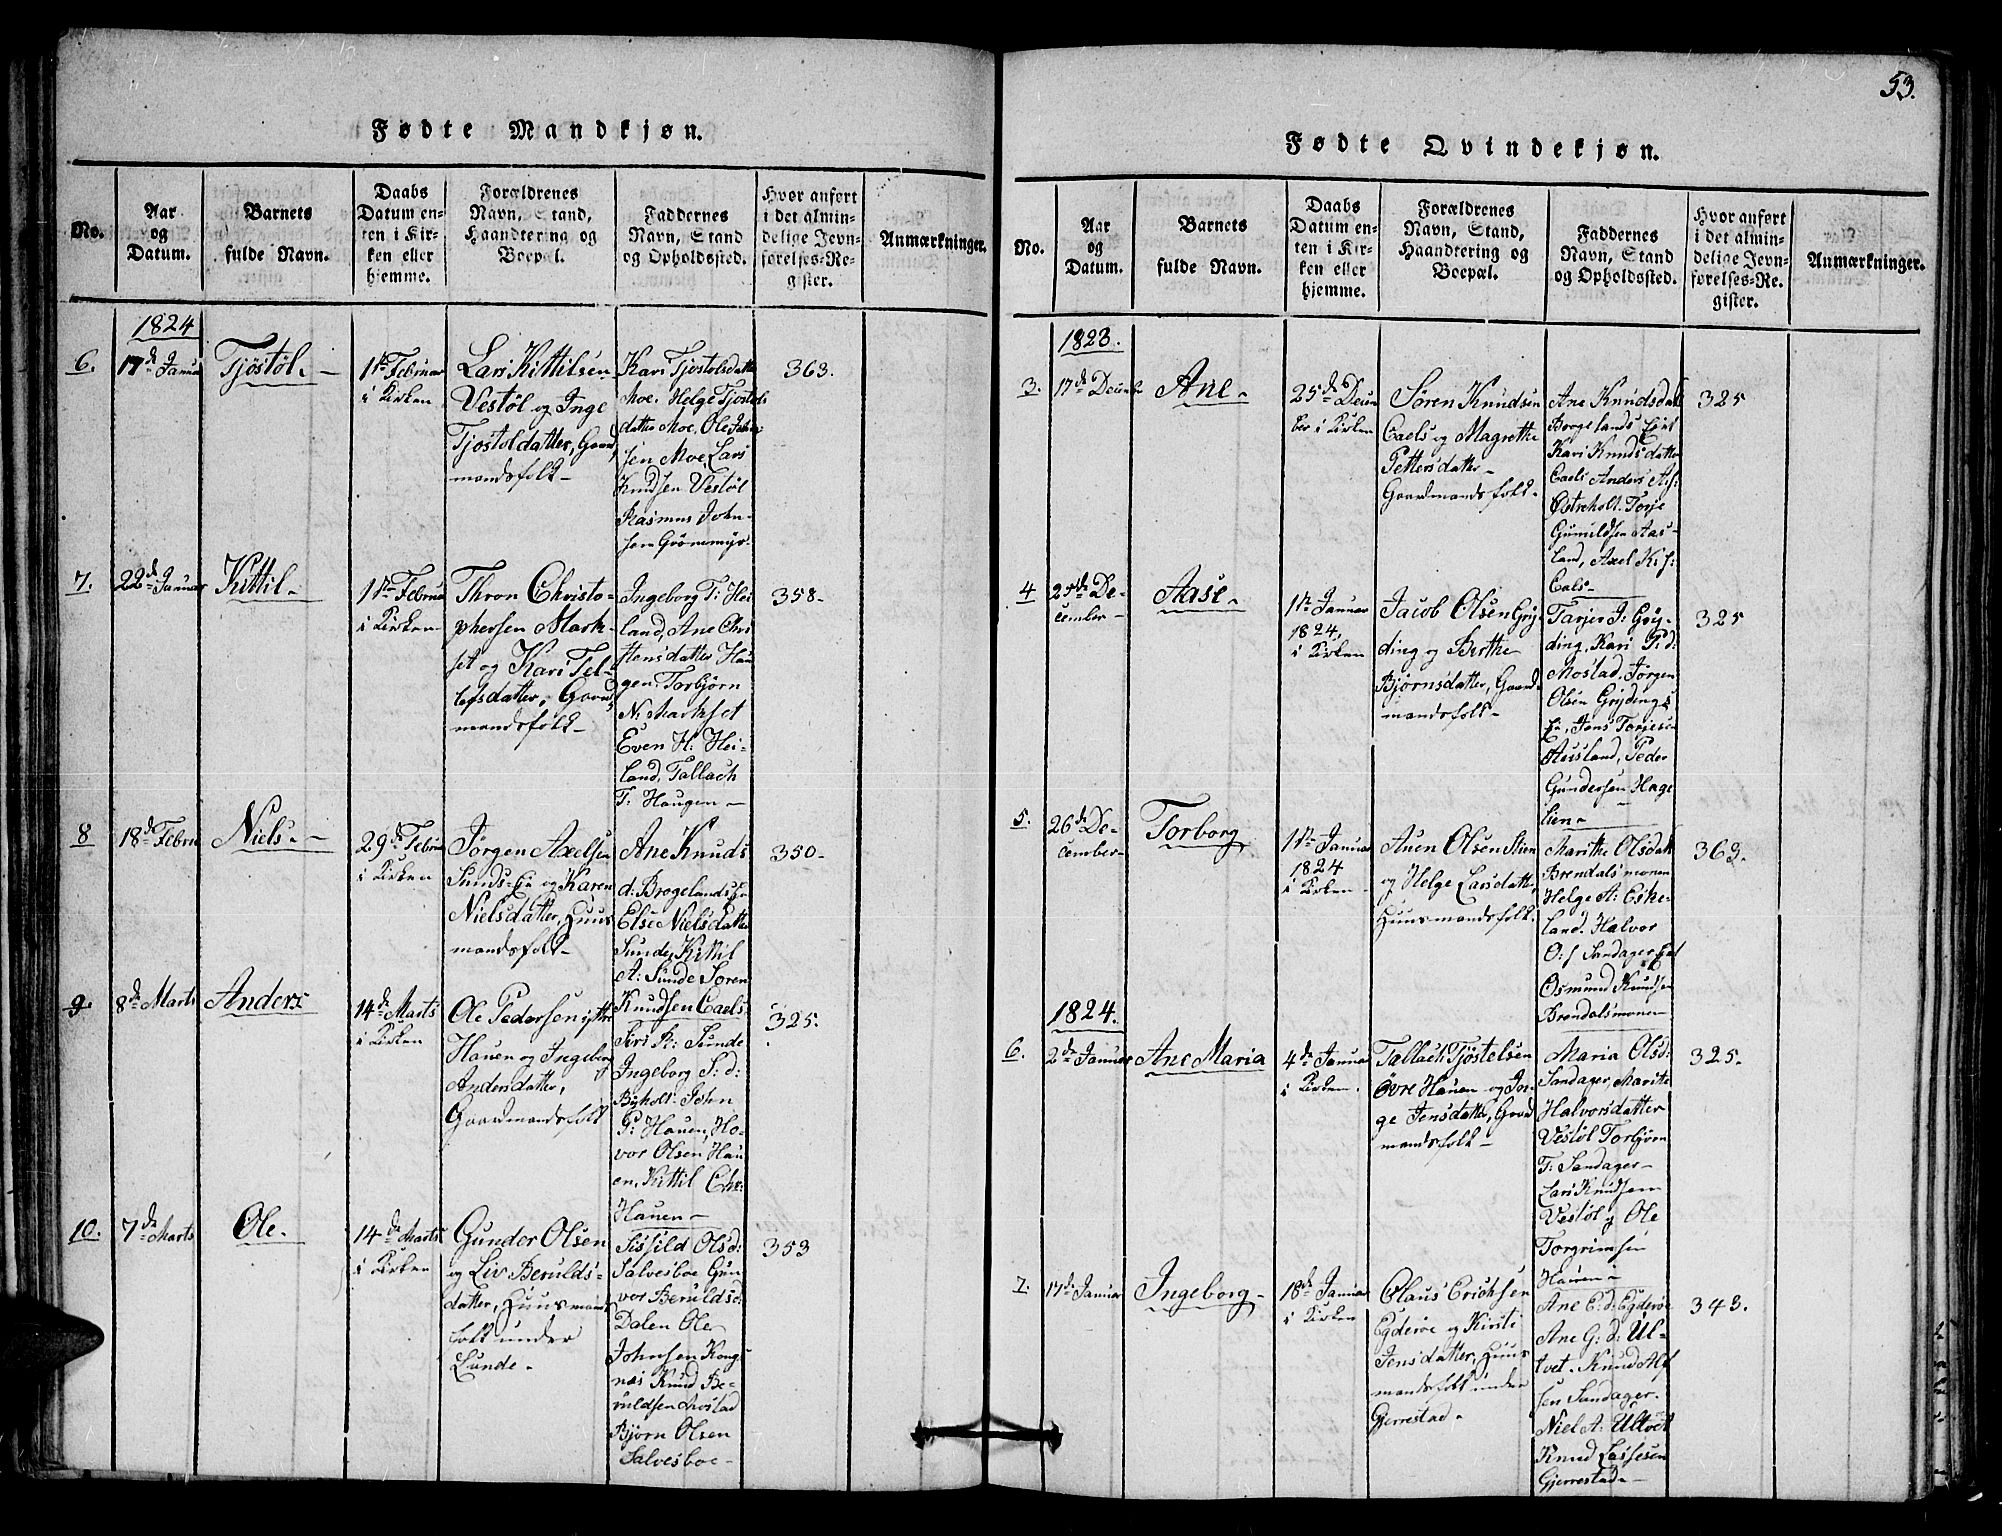 53.
Fødte Mandkjøn.
No.
Aar
og
Datum.
Barnets
fulde Navn.
Daabs
Datum en-
ten i Kir-
ken eller
hjemme.
Forældrenes
Navn, Stand,
Haandtering og
Boepæl.
Faddernes
Navn, Stand
og Opholdssted.
Hvor anført
i det almin-
delige Jevn-
førelses-Re-
gister.
Anmærkninger.
1824
6.
17de Janua
Tjöstöl.-
1ste Februar
i Kirken
Lars Kittilsen
Vestöl og Inge
Tjostoldatter, Gaard
mandsfolk-
Kari Tjostolsdatte
Moe. Helge Tjostols
datter Moe, Ole John
sen Moe Lars
Knudsen Vestöl
Rasmus John-
sen Grönemyr-
363.
7.
22de Januar
Kittil-
1ste Februa
i Kirken
Thron Christo-
phersen Mark-
set og Kari Tel-
lefsdatter, Gaard
mandsfolk-
Ingeborg T: Hei
land, Ane Chri
stensdatter Hau
gen. Torbjörn
N: Markset
Even H: Hei-
land, Tallach
T: Haugen-
358-
8
18de Febru
Niels.-
29de Febru
i Kirken
Jörgen Axelsen
Sunds-Eje og Karen
Nielsdatter, Huus
mandsfolk-
Ane Knuds
d: Brogelands Eje
Else Nielsdatter
Sunde, Kittil
A: Sunde Sören
Knudsen Caels
350-
9.
8de Marts
Anders
14de Marts
i Kirken
Ole Pedersen ytre
Hauen og Ingeborg
Andersdatter,
Gaardmandsfolk
Siri R: Sunde
Ingeborg S: d:
Byholt. John
P: Hauen, Ho-
vor Olsen Hau
en, Kittil Chr:
Hauen-
325.
10.
7de Marts
Ole.
14de Marts
i Kirken
Gunder Olsen
og Liv Berulds-
datter, Huusmans
folk under
Lunde-
Sissild Olsd:
Salvesboe Gun
vor Beruldsd:
Dalen Ole
Johnsen Kong
næs Knud Be-
ruldsen Mostad
Björn Olsen
Salvesboe-
353
Fødte Qvindekjøn.
No.
Aar
og
Datum.
Barnets
fulde Navn.
Daabs
Datum en-
ten i Kir-
ken eller
hjemme.
Forældrenes
Navn, Stand,
Haandtering og
Boepæl.
Faddernes
Navn, Stand
og Opholdssted.
Hvor anført
i det almin-
delige Jevn-
førelses-Re-
gister.
Anmærkninger.
1823.
3.
17de Decembr
Ane-
25de Decem
ber i Kirken
Sören Knudsen
Caels og Magrethe
Pettersdatter-
Gaardmandsfolk-
Ane Knudsdatt
Borgelands Ejet
Kari Knudsdatter
Caels Anders A:
Östreholt. Torje
Gunuldsen Aas-
land, Axel K:
Caels-
325
4
25de De-
cember-
Aase-
1ste Januar
1824,
i Kirken
Jacob Olsen Gry
ding og Berthe
Björnsdatter, Gaard
mandsfolk-
Tarjer J: Gry-
ding, Kari P: d:
Mostad, Jörgen
Olsen Grydings
Eje, Jens Torjesen
Huusland, Peder
Gundersen Hage
lien-
325
5.
26de De-
cember-
Torborg
1ste Januar
1824
i Kirken-
Auen Olsen Stien
og Helge Larsdatter,
Huusmandsfolk.
Marithe Olsdatt
Brendalsmonen
Helge A: Eske-
land. Halvor
O: Sandager
Osmund Knudsen
Brendalsmonen
363.
1824.
6.
2de Januar
Ane Maria
4de Januar
i Kirken.
Tallach Tjöstelsen
Övre Hauen og Jor-
ge Jensdatter, Gaard
mandsfolk-
Maria Olsd:
Sandager, Marithe
Halvorsdatter
Vestöl Torbjörn
T: Sandager-
Lars Knudsen
Vestöl og Ole
Torgrimsen
Hauen-
325.
7.
17de Januar
Ingeborg-
18de Januar
i Kirken
Claus Erichsen
Egderöe og Kirsti
Jensdatter, Huus
mandsfolk under
Gjerrestad-
Ane E: d: Egderöe
Ane G: d: Ul-
tvet. Knud Alf
sen Sandager.
Niel A: Ultvet
Knud Lassesen
Gjerrestad-
343.